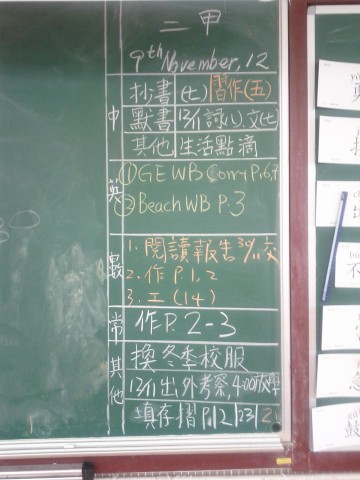 二甲
9th November, 12
中
抄書 (七) 習作(五)
默書 13/11 詞(八), 文(七)
其他 生活點滴
英
① GE WB Corr P.6,7
② Beach WB P.3
數
1. 閱讀報告 30/11 交
2. 作 P.1, 2
3. 工 (14)
常
作P. 2-3
其他
換冬季校服
13/11 出外考察, 4:00放學
填存摺 P.12